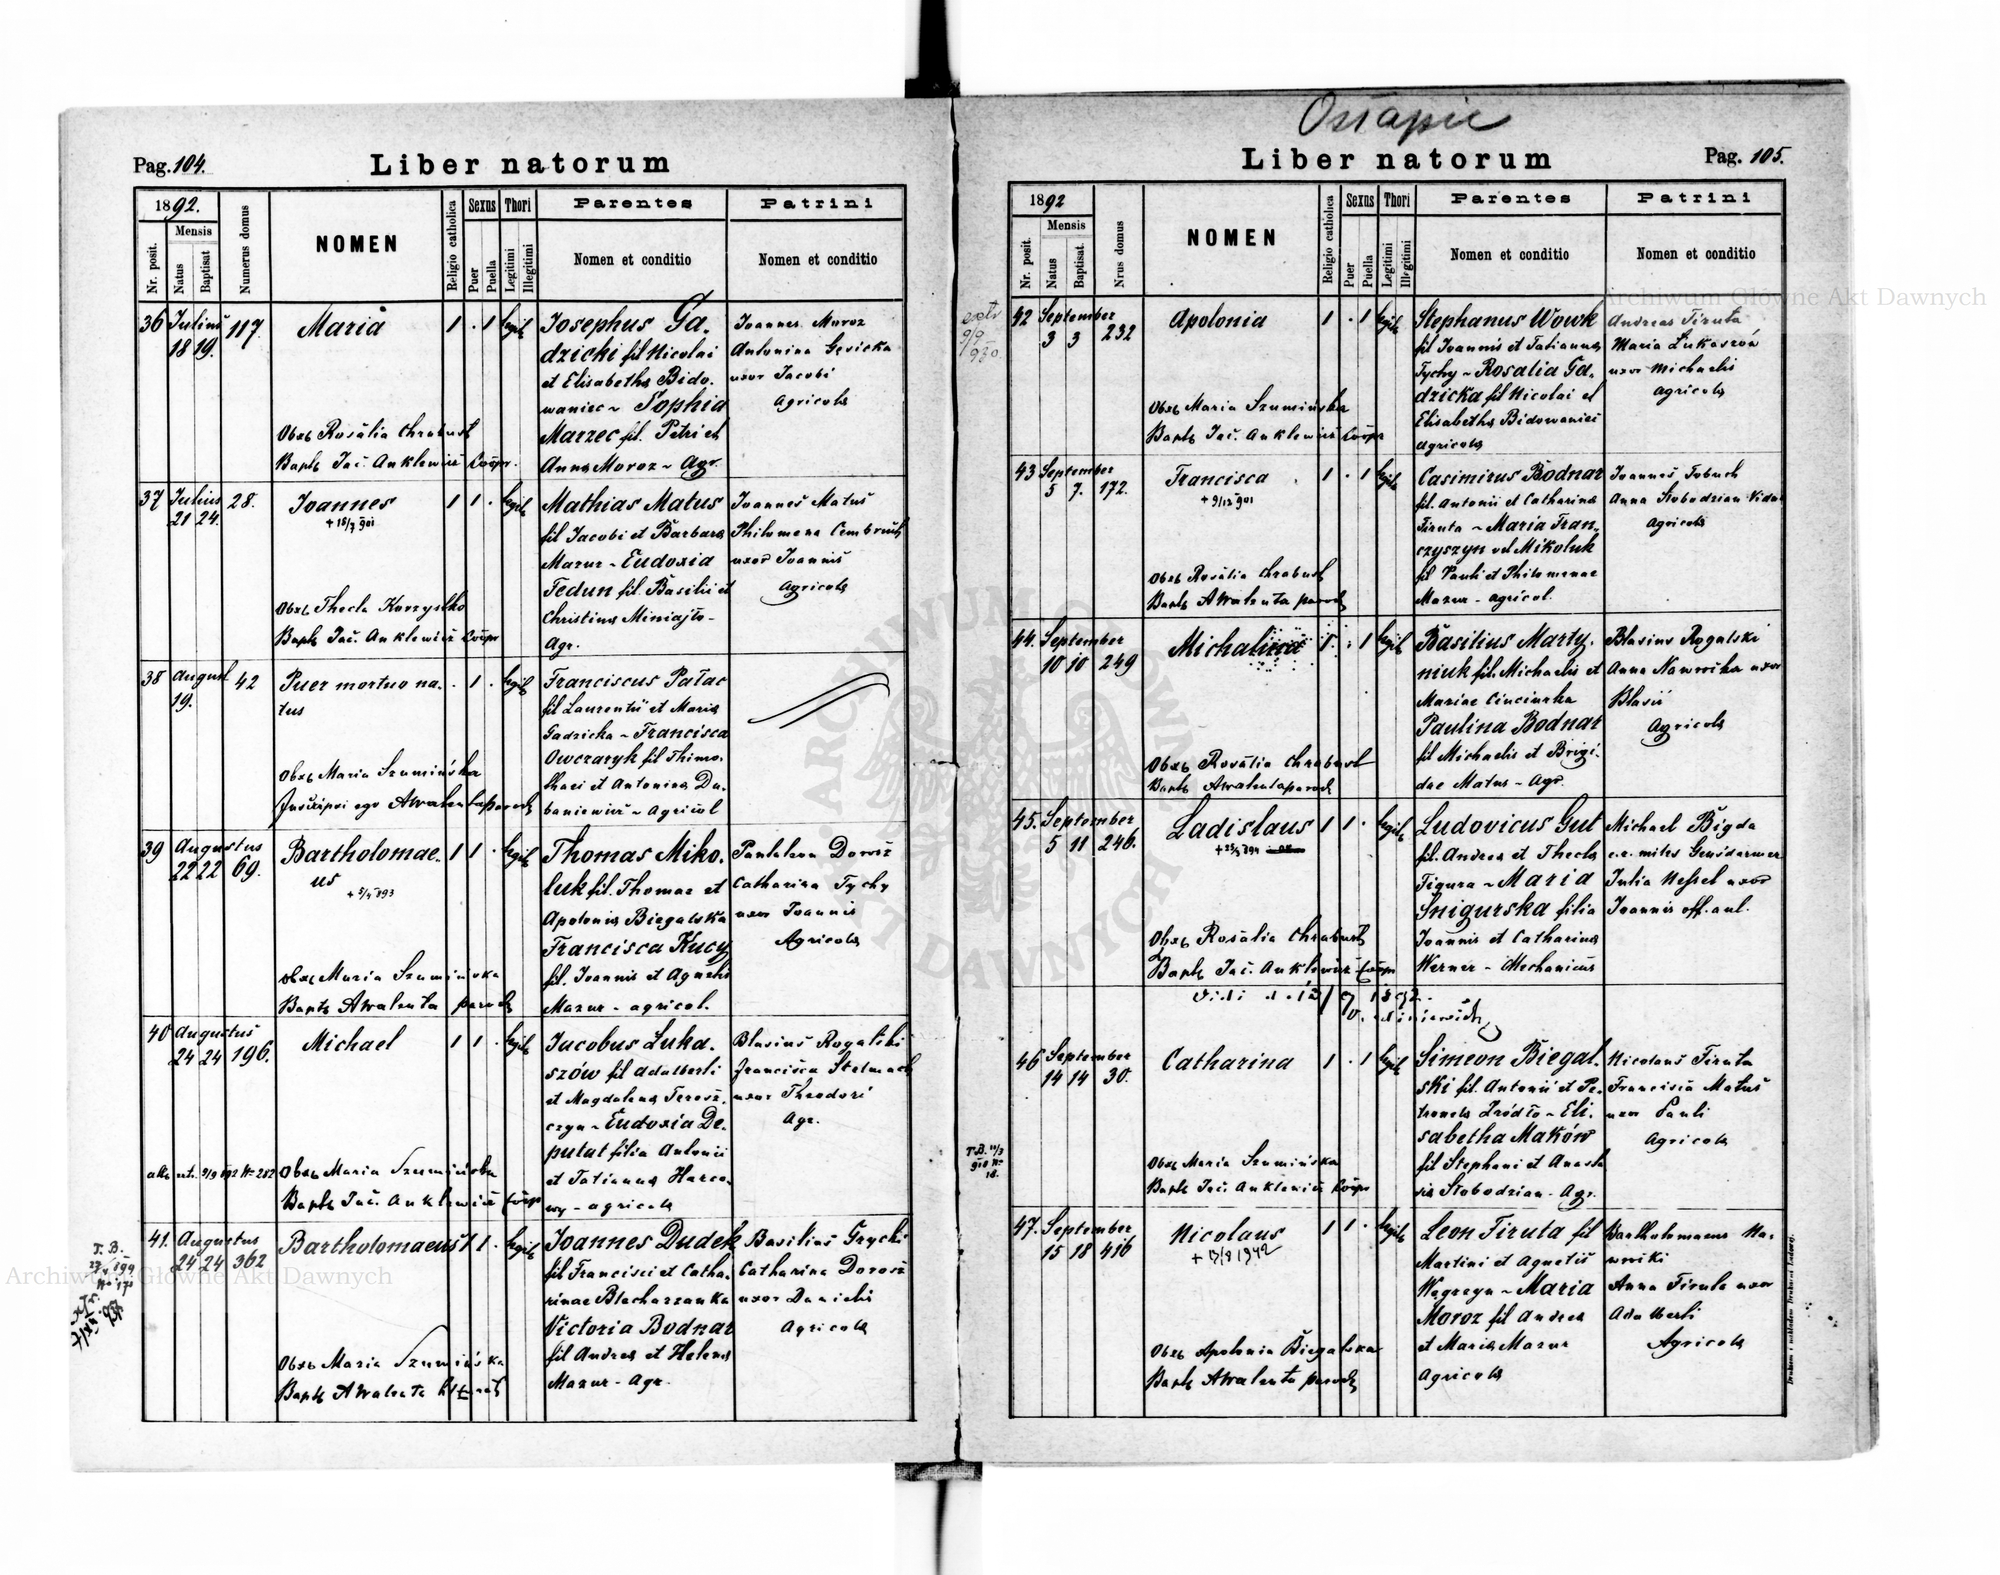 Ostapie
Pag. 104.
Liber natorum
1892.
Mensis
Nr. posit.
Natus
Baptisat
Numerus domus
NOMEN
Religio catholica
Sexus
Puer
Puella
Thori
Legitimi
Illegitimi
Parentes
Nomen et conditio
Patrini
Nomen et conditio
36 Julius 18 19. 117. Maria 1 . 1 legit
Josephus Ga-
dzicki fil Nicolai
et Elisabetha Bido-
waniec ~ Sophia
Marzec fil. Petri et
Anna Moroz ~ Agr.
Joannes Moroz
Antonina Gęsicka
uxor Jacobi
Agricola
Obst Rosalia Chrabust
Bapts Jac. Anklewicz Coop.
37 Julius 21 24. 28. Joannes 1 1 . legit
+ 18/7 901
Mathias Matus
fil Jacobi et Barbara
Mazur ~ Eudoxia
Fedun fil. Basilii et
Christina Miniajło -
Agr.
Joannes Matus
Philomena
uxor Joannis
Agricola
Obst Thecla
Bapts Jac. Anklewicz Coop
38 August 19. 42 Puer mortuo na-
tus . 1 . legit
Franciscus Pałac
fil Laurentii et Maria
Gadzicka ~ Francisca
Owczaryk fil Thimo-
thaei et Antonina Du-
baniewicz ~ Agricol
Obst Maria Szumińska
39 Augustus 22 22 69. Bartholomae-
us 1 1 . legit
+ 5/4 893
Thomas Miko-
luk fil. Thomae et
Apolonia Biegalska
Francisca Kucy
fil. Joannis et Agnetis
Mazur - agricol.
Pantaleon Dorosz
Catharina Tychy
uxor Joannis
Agricola
Obst Maria Szumińska
Bapts Awalenta paroch
40 Augustus 24 24 196. Michael 1 1 . legit
Jacobus Łuka-
szów fil Adalberti
et Magdalena Teresz-
czyn ~ Eudoxia De-
putat filia Antonii
et Tatianna Harco-
wy - agricola
Blasius Rogalski
Francisca Stelmach
uxor Theodori
Agr.
Obst Maria Szumińska
Bapts Jac. Anklewicz Coop
41. Augustus 24 24 362 Bartholomaeus 1 1 . legit
Joannes Dudek
fil Francisci et Catha-
rinae Blacharzanka
Victoria Bodnar
fil Andrea et Helena
Mazur - Agr.
Basilius Grycki
Catharina Dorosz
uxor Danielis
Agricola
Obst Maria Szumińska
Bapts Awalenta
Liber natorum
Pag. 105.
1892
Mensis
Nr. posit.
Natus
Baptisat.
Nrus domus
NOMEN
Religio catholica
Sexus
Puer
Puella
Thori
Legitimi
Illegitimi
Parentes
Nomen et conditio
Patrini
Nomen et conditio
42 September 3 3 232 Apolonia 1 . 1 legit
Stephanus Wowk
fil Joannis et Tatianna
Tychy ~ Rosalia Ga-
dzicka fil Nicolai et
Elisabetha Bidowaniec
agricola
Andreas Firuta
Maria Łukaszów
uxor Michaelis
agricola
Obst Maria Szumińska
Bapts Jac. Anklewicz Coop
43 September 5 7. 172. Francisca 1 . 1 legit
+ 9/12 901
Casimirus Bodnar
fil. Antonii et Catharina
Firuta ~ Maria Fran-
czyszyn vel Mikoluk
fil Pauli et Philomenae
Mazur - agricol.
Joannes
Anna Słobodzian
Agricola
Obst Rosalia Chrabust
Bapts Awalenta paroch
44. September 10 10 249 Michalina 1 . 1 legit
Basilius Marty-
niuk fil. Michaelis et
Mariae
Paulina Bodnar
fil Michaelis et Brigi-
dae Matus - Agr.
Blasius Rogalski
Anna Nawrocka uxor
Blasii
Agricola
Obst Rosalia Chrabust
Bapts Awalenta paroch
45. September 5 11 246. Ladislaus 1 1 . legit
Ludovicus Gut
fil. Andrea et Thecla
Figura ~ Maria
Snigurska filia
Joannis et Catharina
Werner - Mechanicus
Michael Bigda
c.r. miles Gensdarmer
Julia Nessel uxor
Joannis off. aul.
Obst Rosalia Chrabust
Bapts Jac. Anklewicz Coop
46 September 14 14 30. Catharina 1 . 1 legit
Simeon Biegal-
ski fil. Antonii et Pe-
tronela Źródło ~ Eli-
sabetha Maków
fil Stephani et Anasta
sia Słobodzian - Agr.
Nicolaus Firuta
Francisca Matus
uxor Pauli
Agricola
Obst Maria Szumińska
Bapts Jac. Anklewicz Coop
47. September 15 18 416 Nicolaus 1 1 . legit
+ 13/8 1942
Leon Firuta fil
Martini et Agnetis
Węgrzyn ~ Maria
Moroz fil Andrea
et Maria Mazur
Agricola
Bartholomaeus Na-
wrocki
Anna Firuta uxor
Adalberti
Agricola
Obst Apolonia Biegalska
Bapts Awalenta paroch
Archiwum Główne Akt Dawnych
Archiwum Główne Akt Dawnych
ARCHIWUM GŁÓWNE AKT DAWNYCH